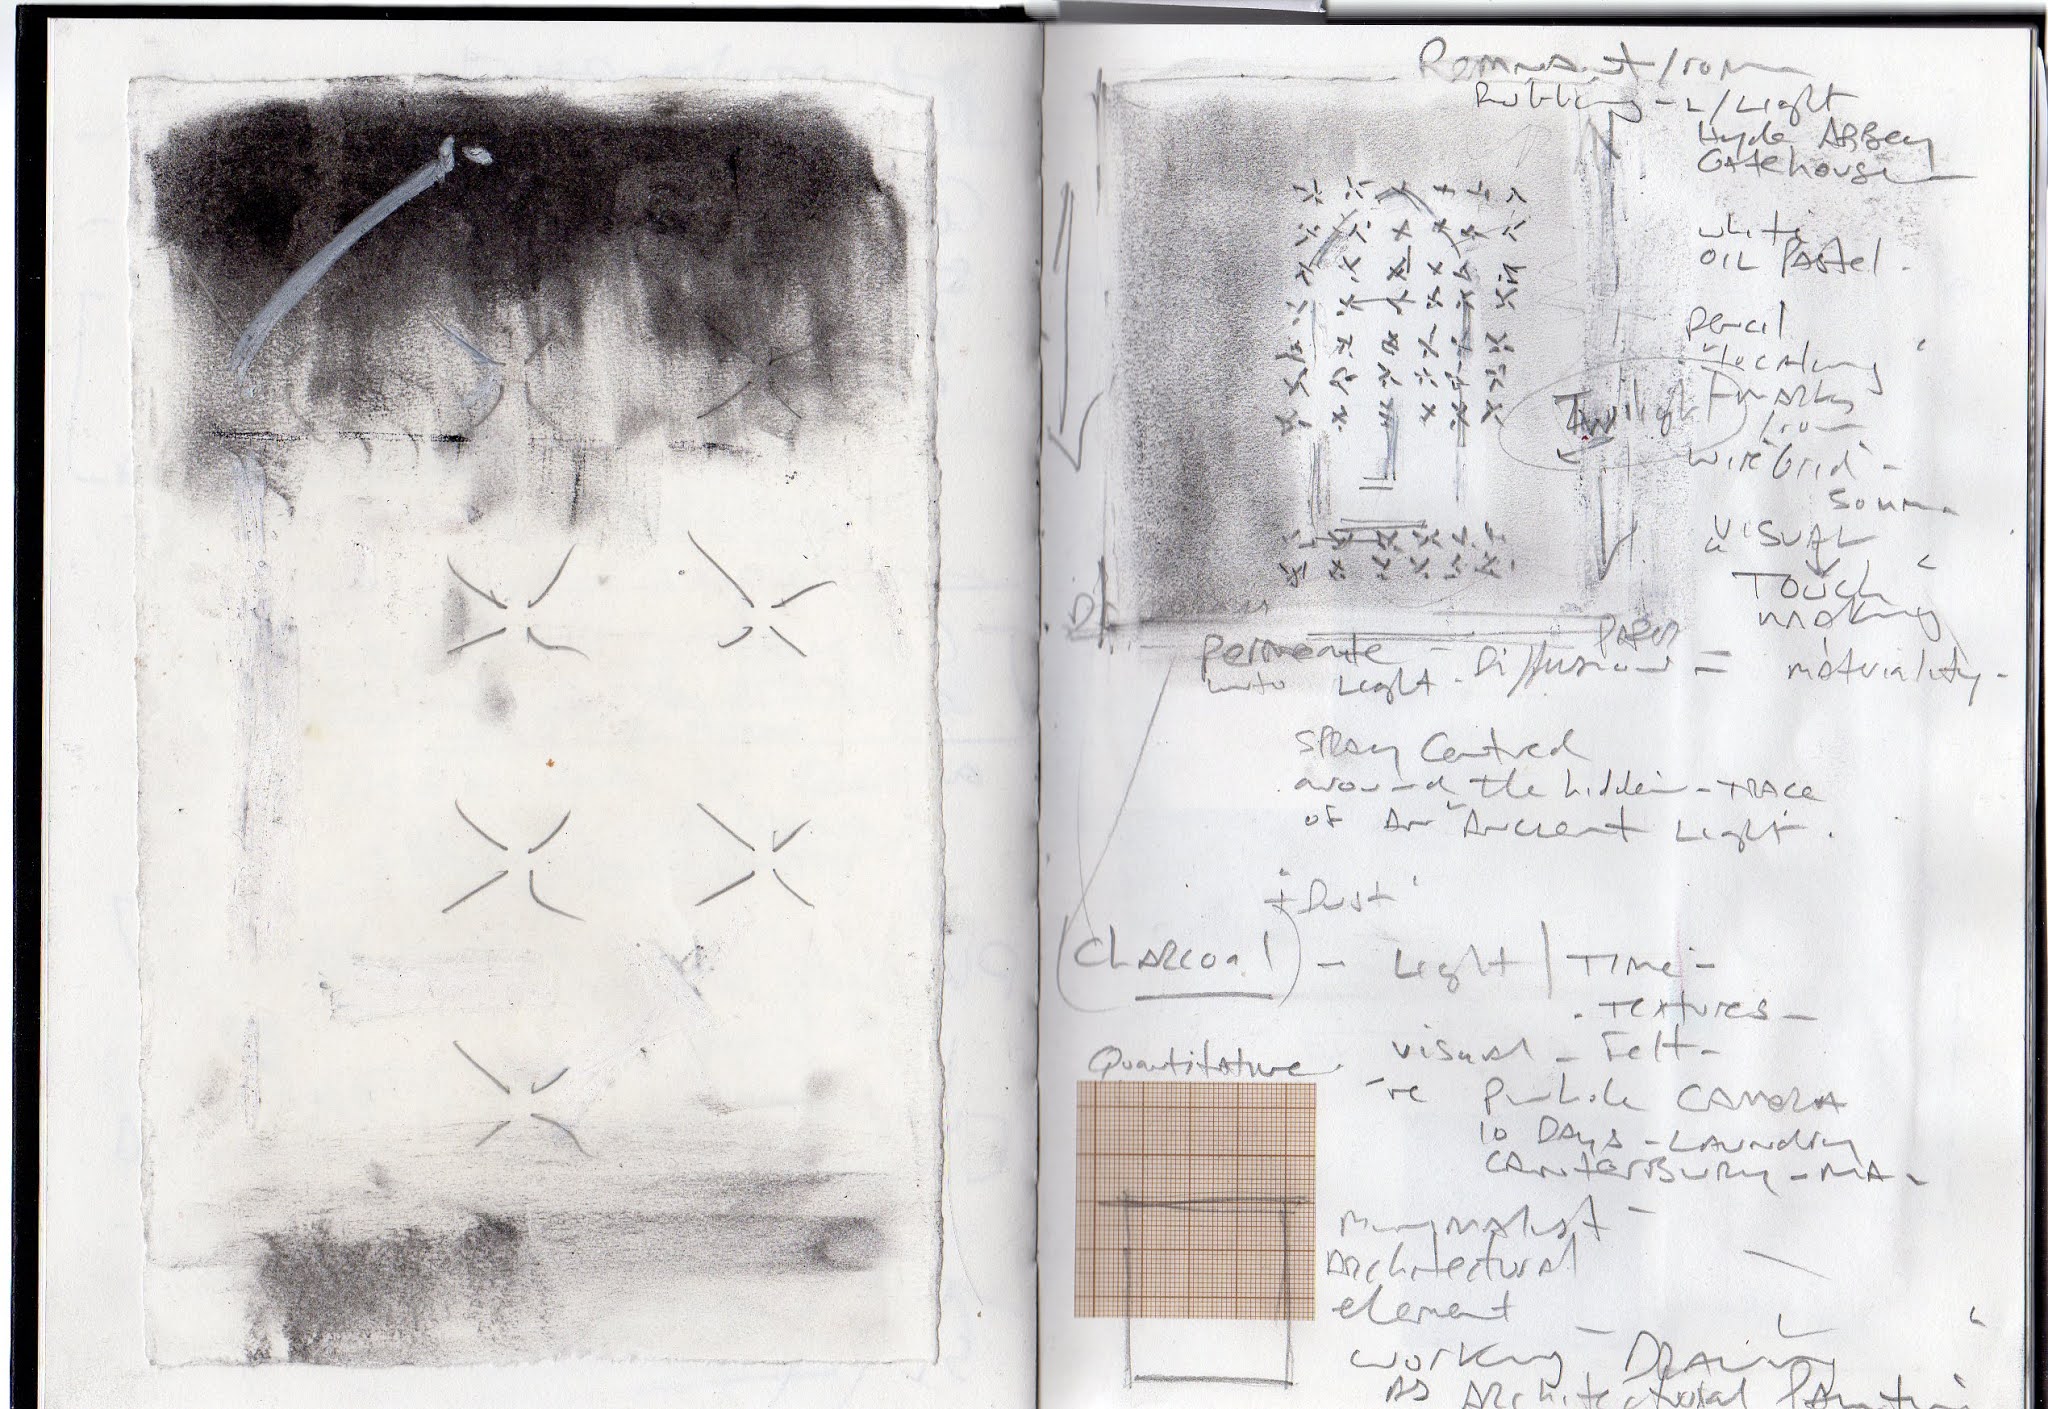 Remnant / from
Rubbing - L/Light
Hyde Abbey
Gatehouse
white
OIL Pastel.
pencil
"locating
marks
from
wire Grid" -
Twilight
VISUAL
TOUCH
making
paper
permeate - Diffusion = materiality -
into Light.
SPRAY Centred
around the hidden - TRACE
of AN "Ancient Light.
+ Dust'
(CHARCOAL) - Light | TIME -
. Textures -
visual - Felt -
Quantitative
're Pinhole CAMERA
10 DAYS - LAUNDRY
CANTERBURY - MA -
Minimalist -
Architectural
element
working DRAWING
AS Architectural Painting